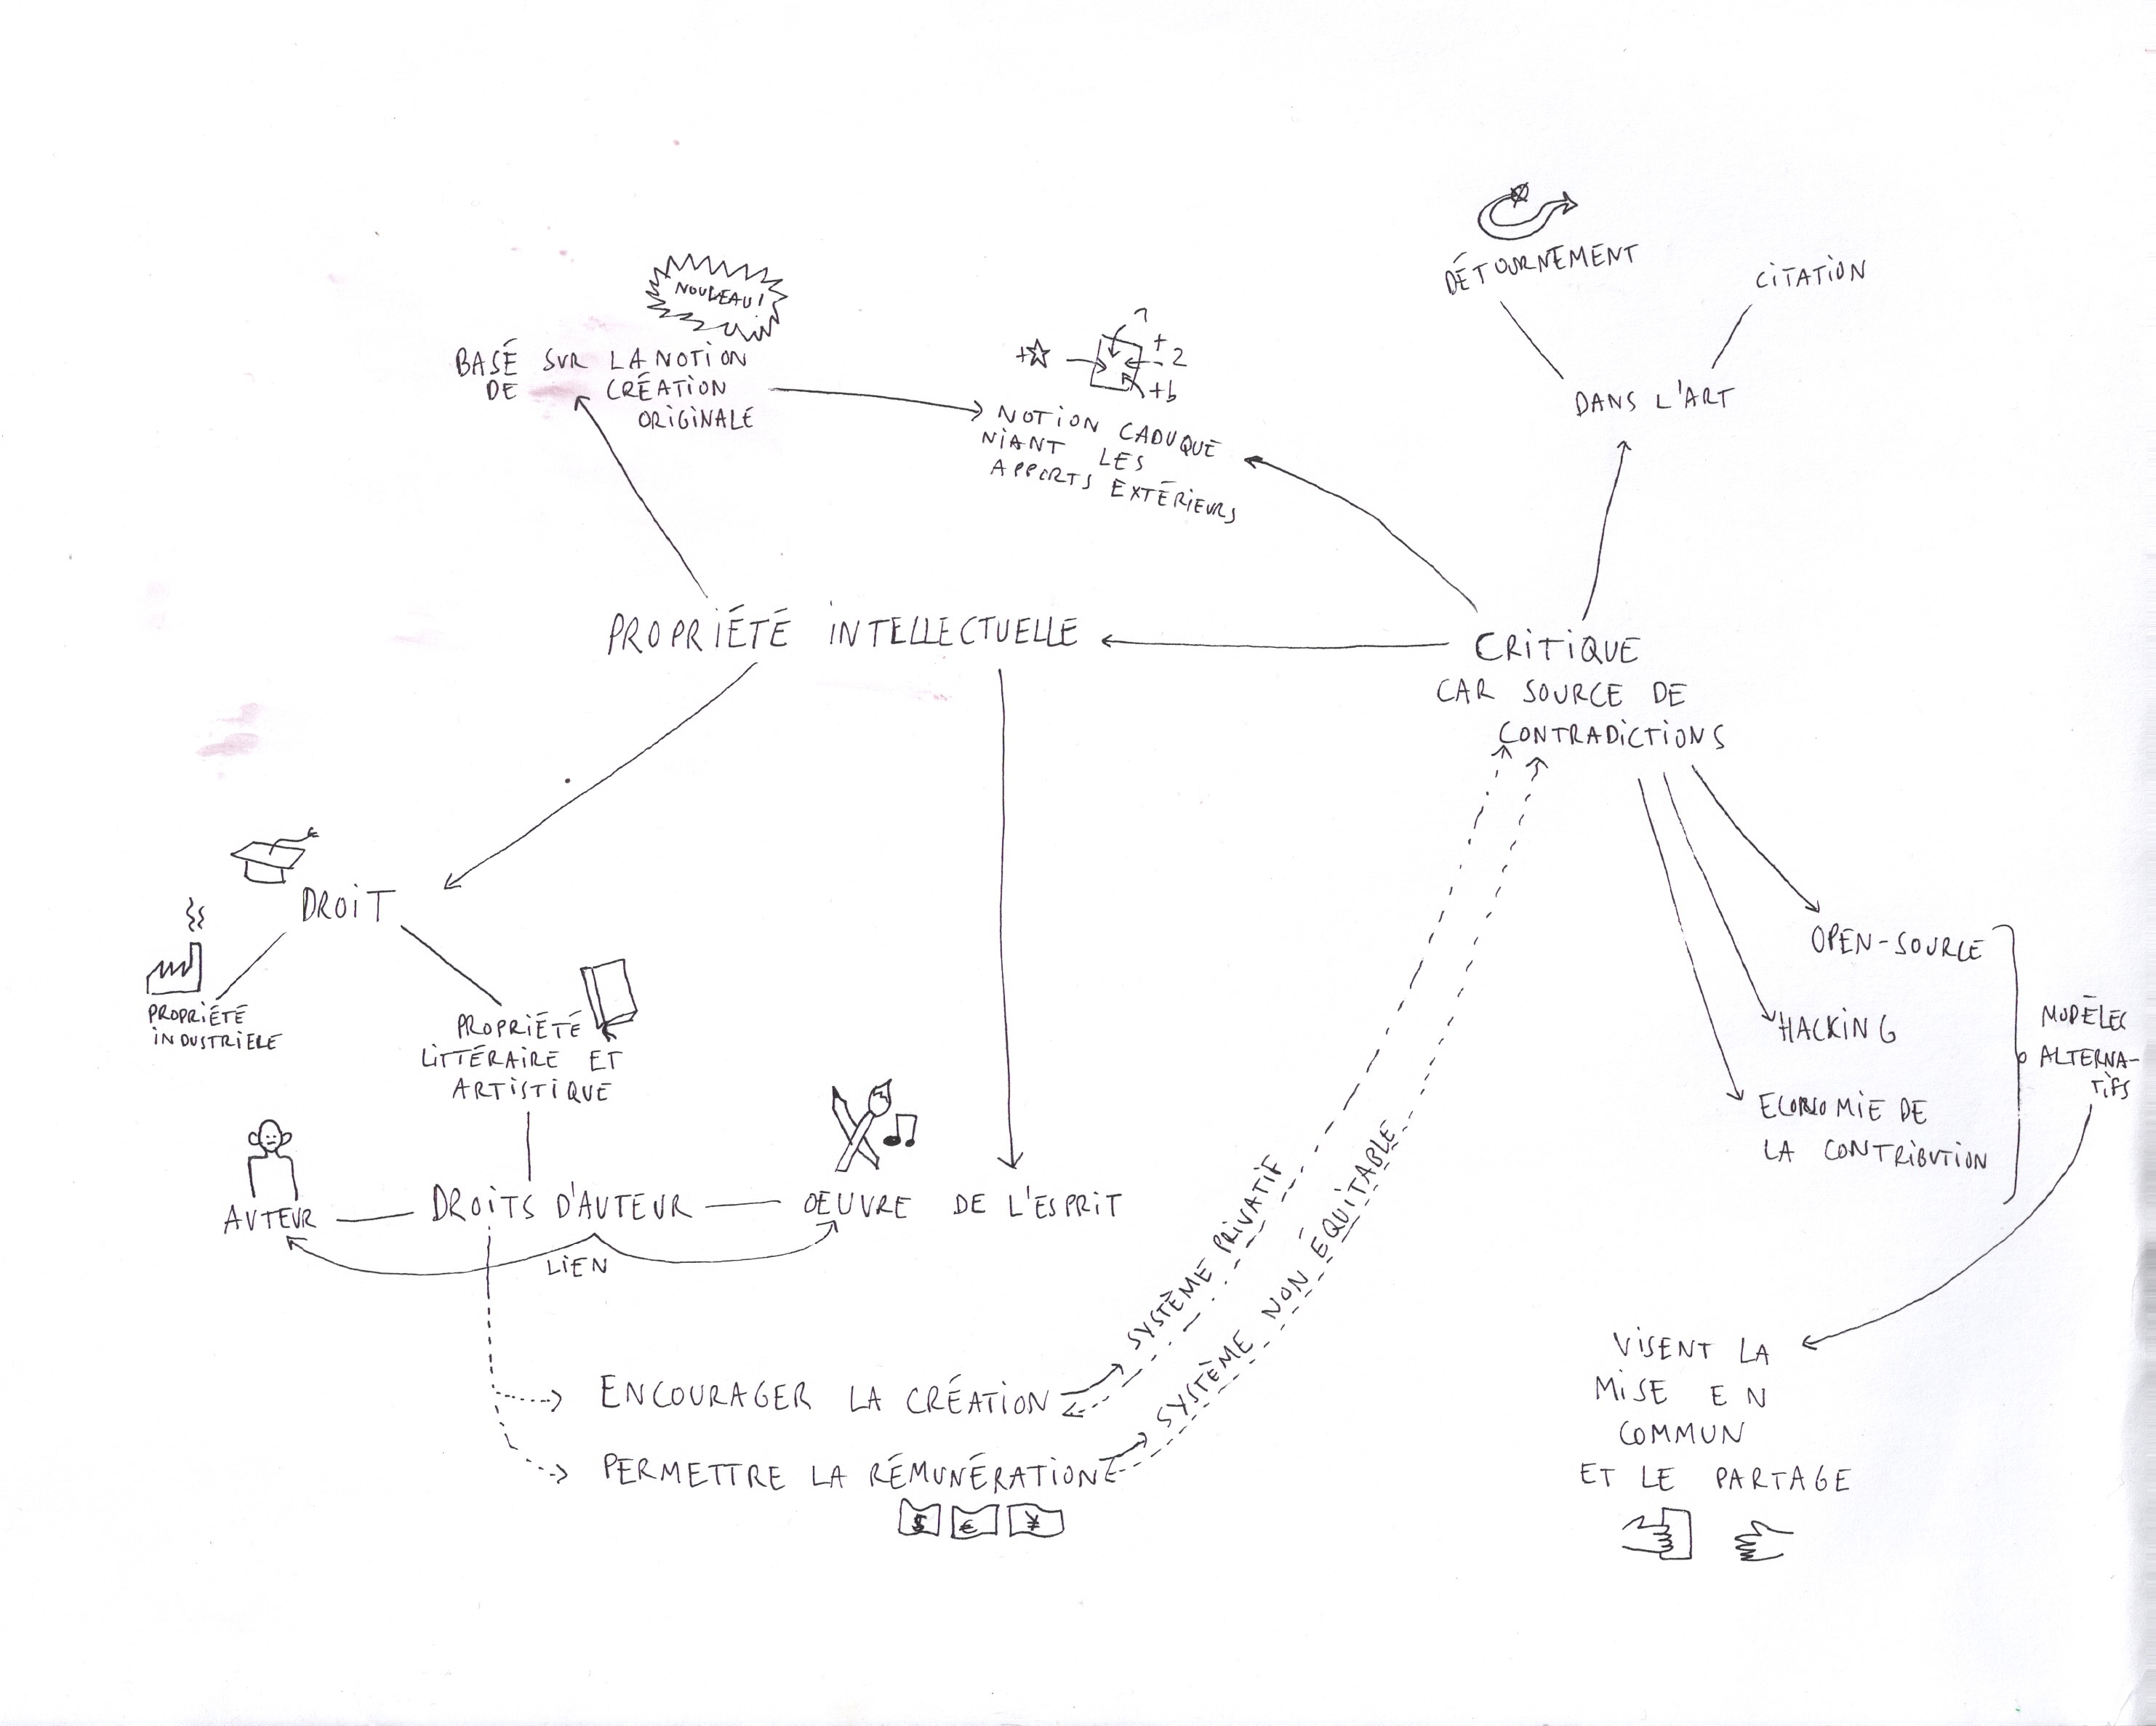 DÉTOURNEMENT
CITATION
DANS L'ART
NOUVEAU!
BASÉ SUR LA NOTION
DE CRÉATION
ORIGINALE
+☆
+
2
+b
NOTION CADUQUE
NIANT LES
APPORTS EXTÉRIEURS
PROPRIÉTÉ INTELLECTUELLE
CRITIQUE
CAR SOURCE DE
CONTRADICTIONS
DROIT
PROPRIÉTÉ
INDUSTRIELE
PROPRIÉTÉ
LITTÉRAIRE ET
ARTISTIQUE
AUTEUR
DROITS D'AUTEUR
OEUVRE DE L'ESPRIT
LIEN
OPEN-SOURCE
HACKING
ECONOMIE DE
LA CONTRIBUTION
MODÈLES
ALTERNA-
TIFS
SYSTÈME PRIVATIF
SYSTÈME NON ÉQUITABLE
ENCOURAGER LA CRÉATION
PERMETTRE LA RÉMUNÉRATION
$ € ¥
VISENT LA
MISE EN
COMMUN
ET LE PARTAGE